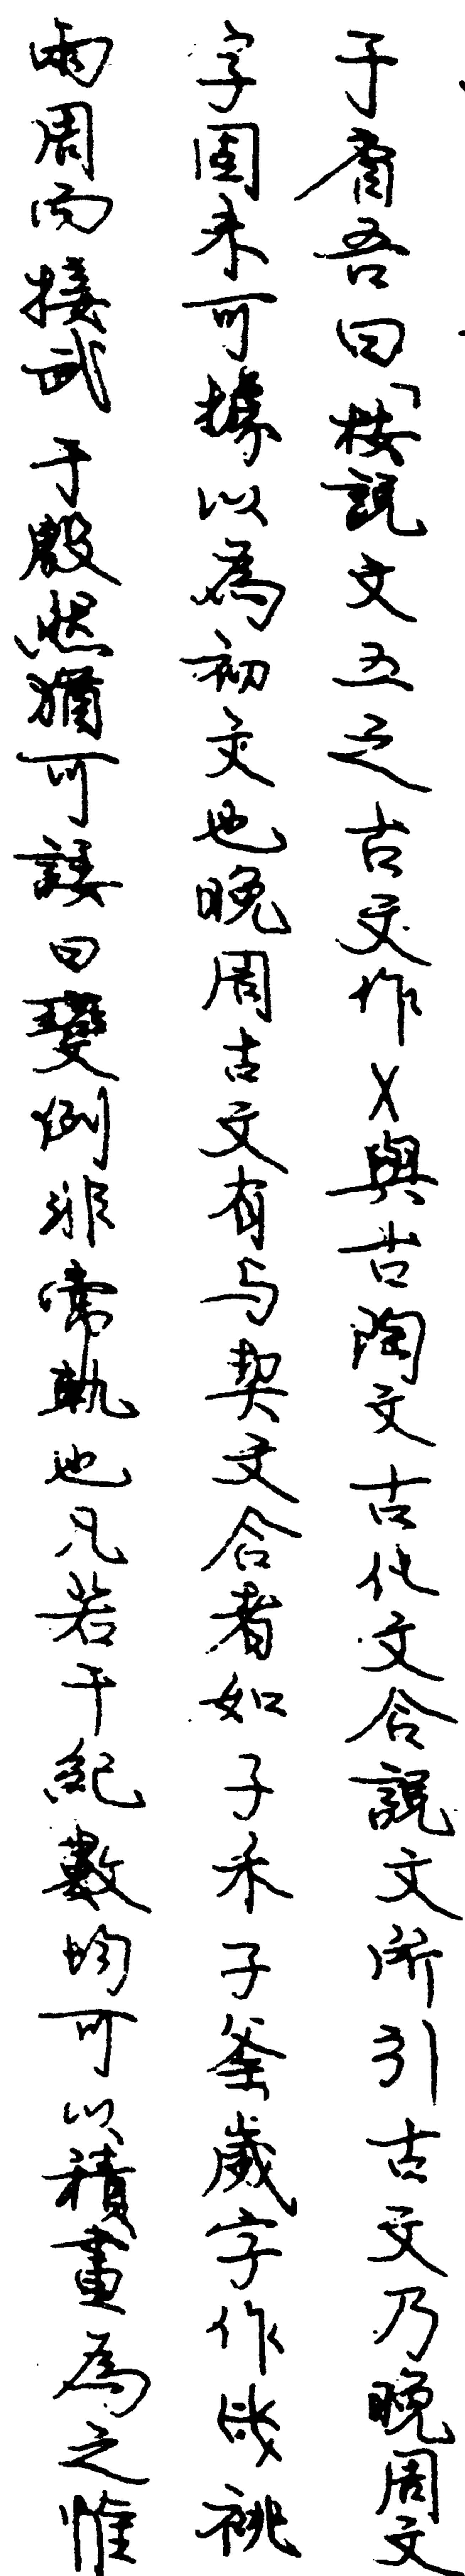 于省吾曰「桉說文五之古文作㐅與古陶文古化文合說文所引古文乃晚周文
字固未可據以為初文也晚周古文有与契文合者如子禾子釜歲字作𢧀祧
兩周而接武于殷然猶可諉曰變例非常軌也凡若干紀數均可以積畫為之惟